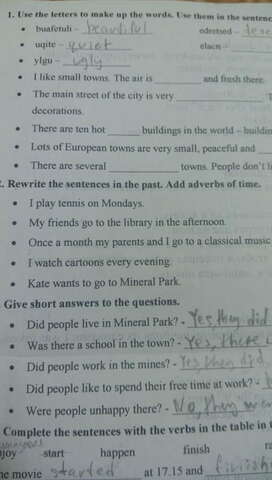 1. Use the letters to make up the words. Use them in the sentenc
• buafetuli - beautiful odretsed -
• uqite - quiet elacn -
• ylgu - ugly
• I like small towns. The air is ______ and fresh there.
• The main street of the city is very ______
decorations.
• There are ten hot ______ buildings in the world – buildin
• Lots of European towns are very small, peaceful and ___
• There are several ______ towns. People don't l
. Rewrite the sentences in the past. Add adverbs of time.
• I play tennis on Mondays.
• My friends go to the library in the afternoon.
• Once a month my parents and I go to a classical music
• I watch cartoons every evening.
• Kate wants to go to Mineral Park.
Give short answers to the questions.
• Did people live in Mineral Park? - Yes, they did
• Was there a school in the town? - Yes, there
• Did people work in the mines? - Yes they did,
• Did people like to spend their free time at work? -
• Were people unhappy there? - No, they
Complete the sentences with the verbs in the table in t
joy start happen finish ra
he movie started at 17.15 and finish